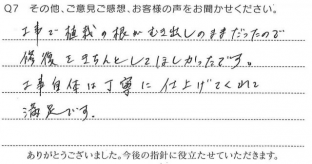 Q7 その他、ご意見ご感想、お客様の声をお聞かせください。
工事で植栽の根がむき出しのままだったので
修復をきちんとしてほしかったです。
工事自体は丁寧に仕上げてくれて
満足です。
ありがとうございました。今後の指針に役立たせていただきます。